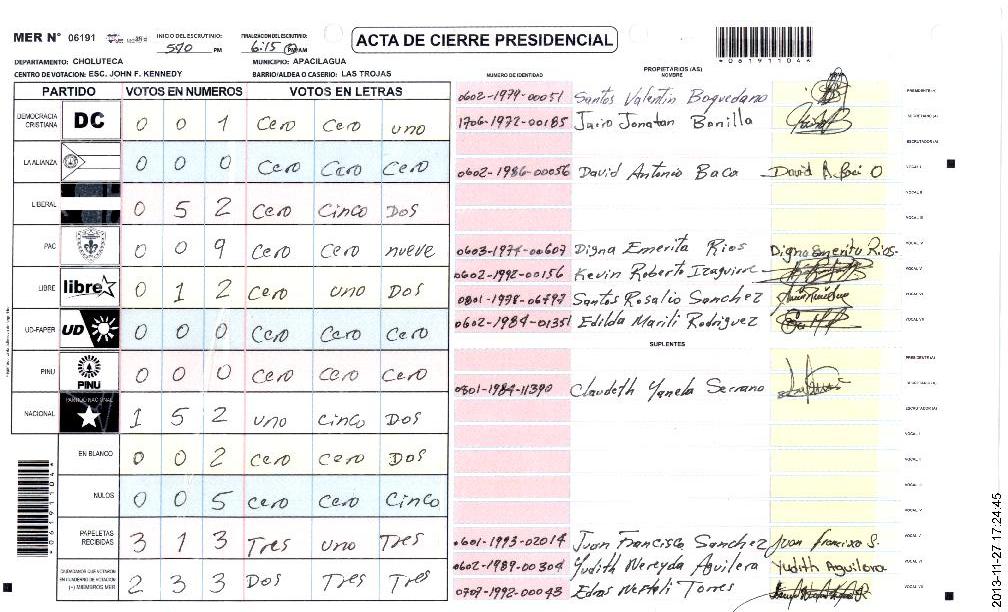 MER N° 06191
INICIO DEL ESCRUTINIO: 5:10 PM
FINALIZACION DEL ESCRUTINIO: 6:15 PM AM
ACTA DE CIERRE PRESIDENCIAL
*061911044*
DEPARTAMENTO: CHOLUTECA MUNICIPIO: APACILAGUA
CENTRO DE VOTACION: ESC. JOHN F. KENNEDY BARRIO/ALDEA O CASERIO: LAS TROJAS
PARTIDO VOTOS EN NUMEROS VOTOS EN LETRAS
DEMOCRACIA CRISTIANA DC 0 0 1 Cero Cero uno
LA ALIANZA 0 0 0 Cero Cero Cero
LIBERAL 0 5 2 Cero Cinco Dos
PAC 0 0 9 Cero Cero nueve
LIBRE libre 0 1 2 Cero uno Dos
UD-FAPER UD 0 0 0 Cero Cero Cero
PINU PINU 0 0 0 Cero Cero Cero
NACIONAL PARTIDO NACIONAL 1 5 2 uno Cinco Dos
EN BLANCO 0 0 2 Cero Cero Dos
NULOS 0 0 5 Cero Cero Cinco
PAPELETAS RECIBIDAS 3 1 3 Tres uno Tres
CIUDADANOS QUE VOTARON EN CUADERNO DE VOTACION (+) MIEMBROS MER 2 3 3 Dos Tres Tres
NUMERO DE IDENTIDAD PROPIETARIOS (AS) NOMBRE
0602-1979-00051 Santos Valentin Boquedano PRESIDENTE(A)
1706-1972-00185 Jairo Jonatan Bonilla SECRETARIO (A)
ESCRUTADOR(A)
0602-1986-00056 David Antonio Baca David A. Baca O VOCAL I
VOCAL II
VOCAL III
0603-1974-00607 Digna Emerita Rios Digna Emerita Rios. VOCAL IV
0602-1992-00156 Kevin Roberto Izaguirre VOCAL V
0801-1978-06797 Santos Rosalio Sanchez VOCAL VI
0602-1984-01351 Edilda Marili Rodriguez VOCAL VII
SUPLENTES
PRESIDENTE(A)
0801-1984-11390 Claudeth Yanela Serrano SECRETARIO (A)
ESCRUTADOR (A)
VOCAL I
VOCAL II
VOCAL III
VOCAL IV
0601-1993-02014 Juan Francisco Sanchez Juan francisco S. VOCAL V
0602-1989-00304 Yudith Nereyda Aguilera Yudith Aguilera VOCAL VI
0707-1992-00043 Edras Neftali Torres VOCAL VII
*061911044*
2013-11-27 17:24:45